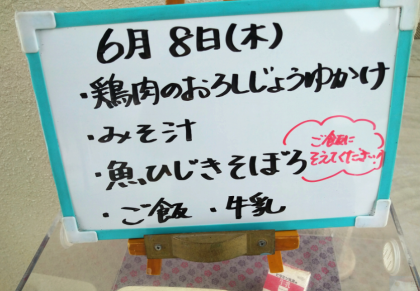 6月8日(木)
・鶏肉のおろしじょうゆかけ
・みそ汁
・魚ひじきそぼろ
ご飯に
そえてください
・ご飯・牛乳